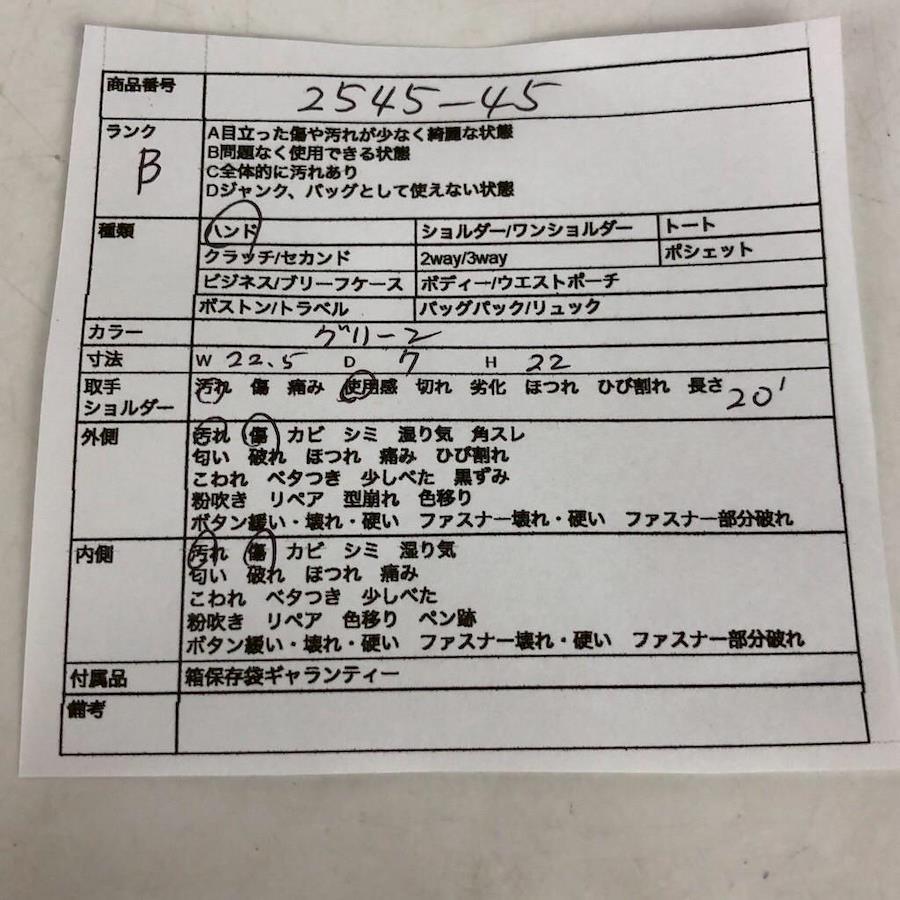 商品番号 2545-45
ランク B
A目立った傷や汚れが少なく綺麗な状態
B問題なく使用できる状態
C全体的に汚れあり
Dジャンク、バッグとして使えない状態
種類 ハンド ショルダー/ワンショルダー トート
クラッチ/セカンド 2way/3way ポシェット
ビジネス/ブリーフケース ボディー/ウエストポーチ
ボストン/トラベル バッグパック/リュック
カラー グリーン
寸法 W 22.5 D 7 H 22
取手 汚れ 傷 痛み 使用感 切れ 劣化 ほつれ ひび割れ 長さ 20'
ショルダー
外側 汚れ 傷 カビ シミ 湿り気 角スレ
匂い 破れ ほつれ 痛み ひび割れ
こわれ ベタつき 少しべた 黒ずみ
粉吹き リペア 型崩れ 色移り
ボタン緩い・壊れ・硬い ファスナー壊れ・硬い ファスナー部分破れ
内側 汚れ 傷 カビ シミ 湿り気
匂い 破れ ほつれ 痛み
こわれ ベタつき 少しべた
粉吹き リペア 色移り ペン跡
ボタン緩い・壊れ・硬い ファスナー壊れ・硬い ファスナー部分破れ
付属品 箱保存袋ギャランティー
備考